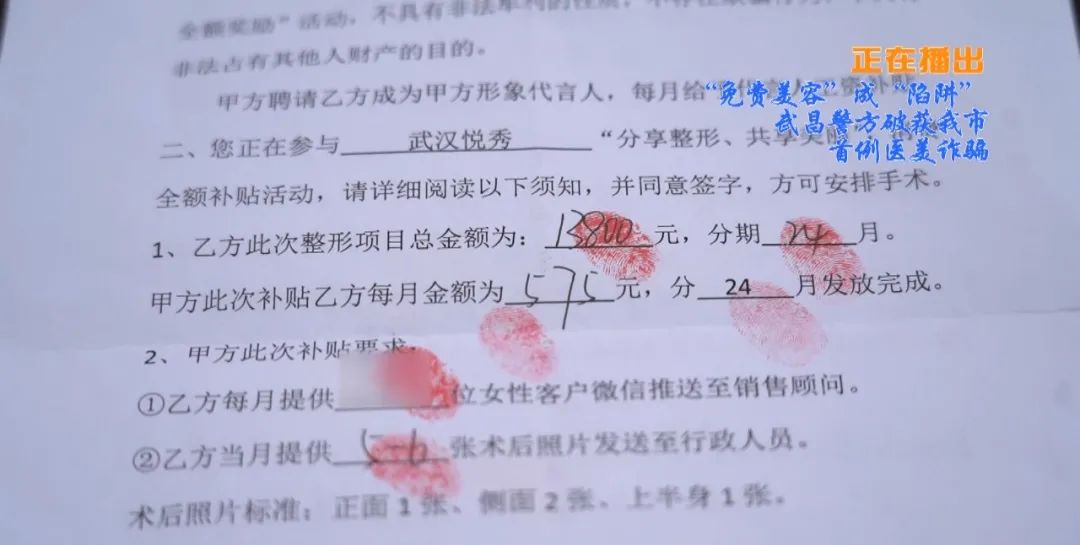 全额奖励”活动，不具有非法牟利的性质，不存在欺骗行为，不具有
非法占有其他人财产的目的。
正在播出
甲方聘请乙方成为甲方形象代言人，每月给
“免费美容”成“陷阱”
武昌警方破获我市
首例医美诈骗
二、您正在参与 武汉悦秀 “分享整形、共享美丽
全额补贴活动，请详细阅读以下须知，并同意签字，方可安排手术。
1、乙方此次整形项目总金额为：13800元，分期24月。
甲方此次补贴乙方每月金额为575元，分24月发放完成。
2、甲方此次补贴要求：
①乙方每月提供 位女性客户微信推送至销售顾问。
②乙方当月提供5-6张术后照片发送至行政人员。
术后照片标准：正面1张、侧面2张、上半身1张。